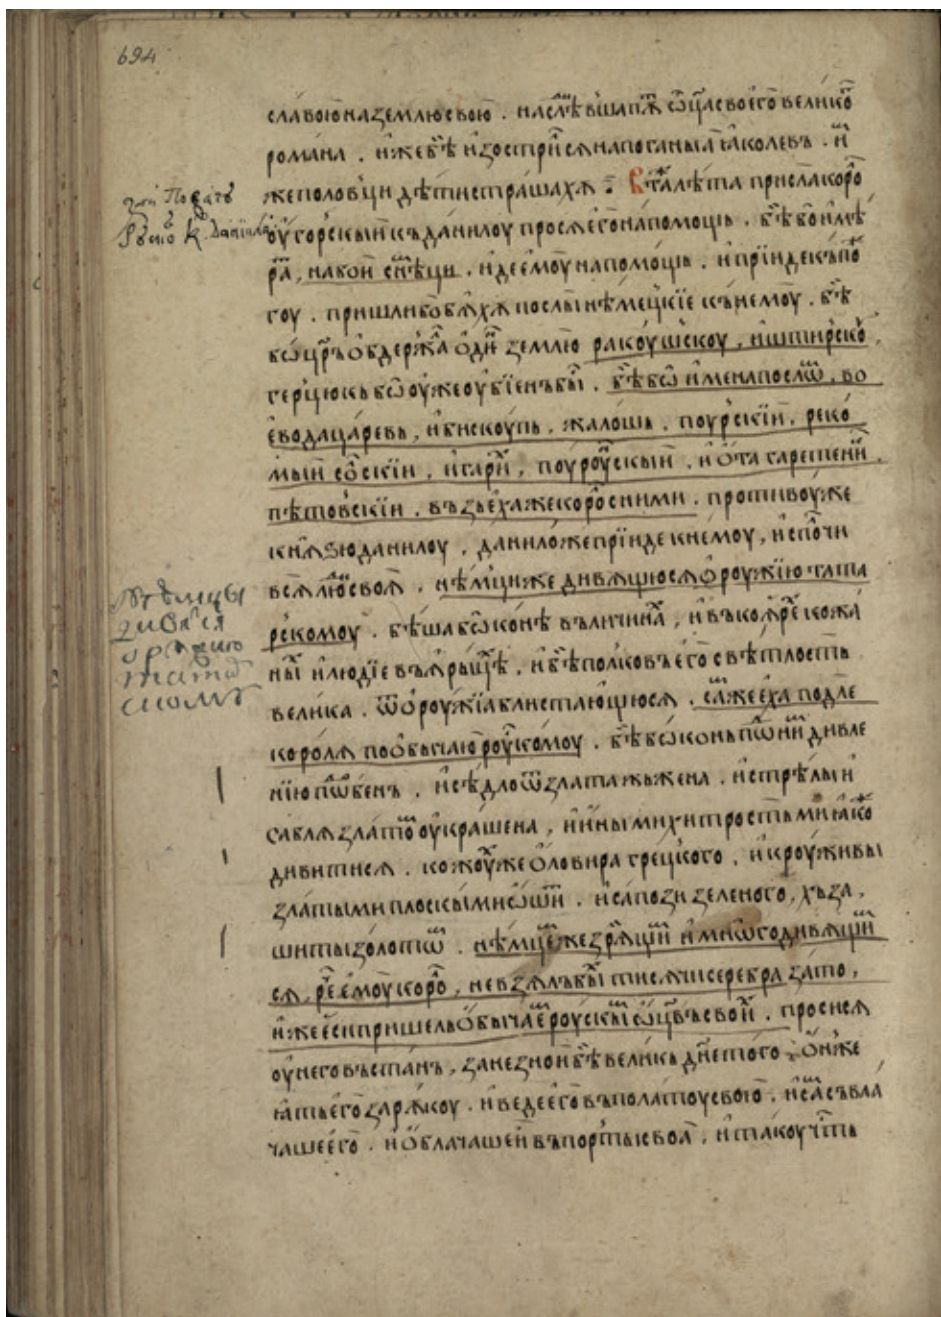 694
славою на землю свою . наслѣдивша пꙋть ѿца своего великⷪ
романа . иже бѣ изострилсѧ на поганыꙗ ꙗко левъ . и
же половци дѣти страшахꙋ : В таже лѣта прислакорⷪ
оугорскыи къ данилоу просѧ его на помощь . бѣ бо имѣꙗ
ра̑ , на бои с нѣмци . иде емоу на помощь . и прїиде къ по
гоу . пришли бо бѧхꙋ послы нѣмецкїе къ немоу . бѣ
бо црь обдержа одиⷩ землю ракоушскоу , и штирскоⷹ .
герцюкь бо оуже оубїенъ быⷭ . бѣ бо имена послѡⷨ , во
евода царевъ , и бискоупь , жалошь , поурскїи , реко
мыи солскїи , и гариⷯ , поуроунскыи , и ѡта гаретенииⷦ ,
пѣтовскїи . въъзьеха же король с ними . противоу же
кнѧзю данилоу , данило же прїиде к немоу , исполчи
всѧ люди своꙗ . нѣмци же дивѧщюсѧ ороужїю тата
рскомоу . бѣша бо конѣ в личинаⷯ , и въ коꙗреⷯ кожа
ныⷯ и людїе въ ꙗрыцѣⷯ , и бѣ полковъ его свѣтлость
велика . ѿ ороужїа блистающюсѧ . саⷨ же еха подле
королѧ по обычаю роускомоу . бѣ бо конь под ниⷨ дивле
нїю подобенъ . и сѣдло ѿ злата жьжена . и стрѣлы и
саблѧ златоⷨ оукрашена , и иными хитростьми ꙗкоⷤ
дивитисѧ . кожоуⷯ же оловира грецкого , и кроуживы
златыми плоскыми ошиⷮ . и сапози зеленого , хъза ,
шиты золотѡⷨ . нѣмцеⷨ же зрѧщиⷨ и много дивѧщиⷨ
сѧ , речⷭ емоу король , не взѧлъ быⷯ тисѧчи серебра за то ,
иже еси пришелъ обычаеⷨ роускыⷨ ѿцъвъ своиⷯ . просисѧ
оу него въ станъ , зане зной бѣ великъ дне того . онъ же
ꙗть его за рꙋкоу . и веде его въ полатоу свою . и саⷨ съвла
чаше его . и облачашеи въ порты своꙗ , и такоу честь
нѣмцы
дивѧⷮсѧ
орꙋжию
татаⷬ
скомꙋ